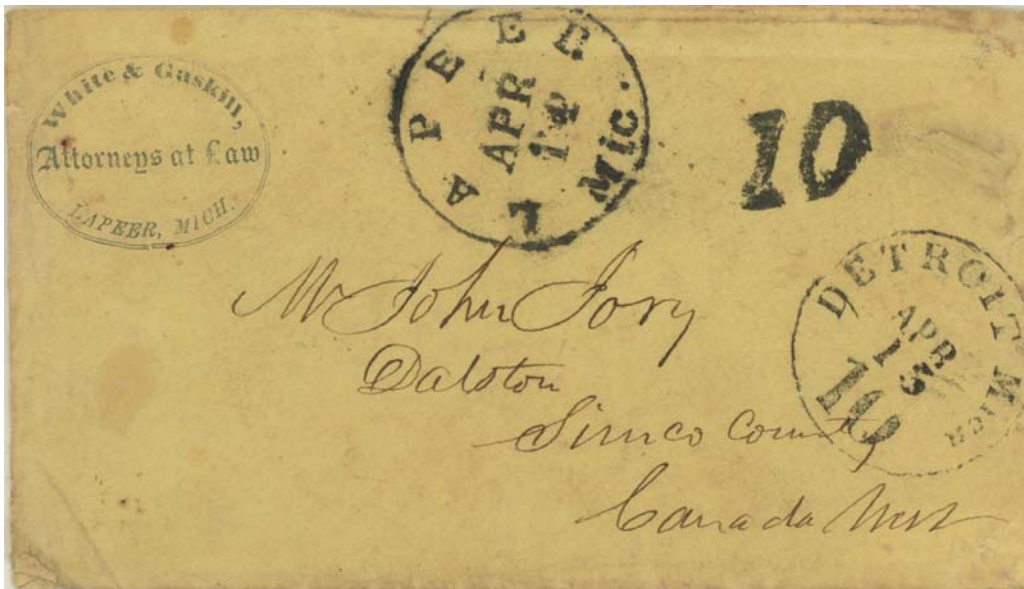 White & Gaskill,
Attorneys at Law
LAPEER, MICH.
LAPEER Mic.
APR
14
10
DETROIT Mich
APR
15
10
Mr John Jory
Dalston
Simco County
Canada West